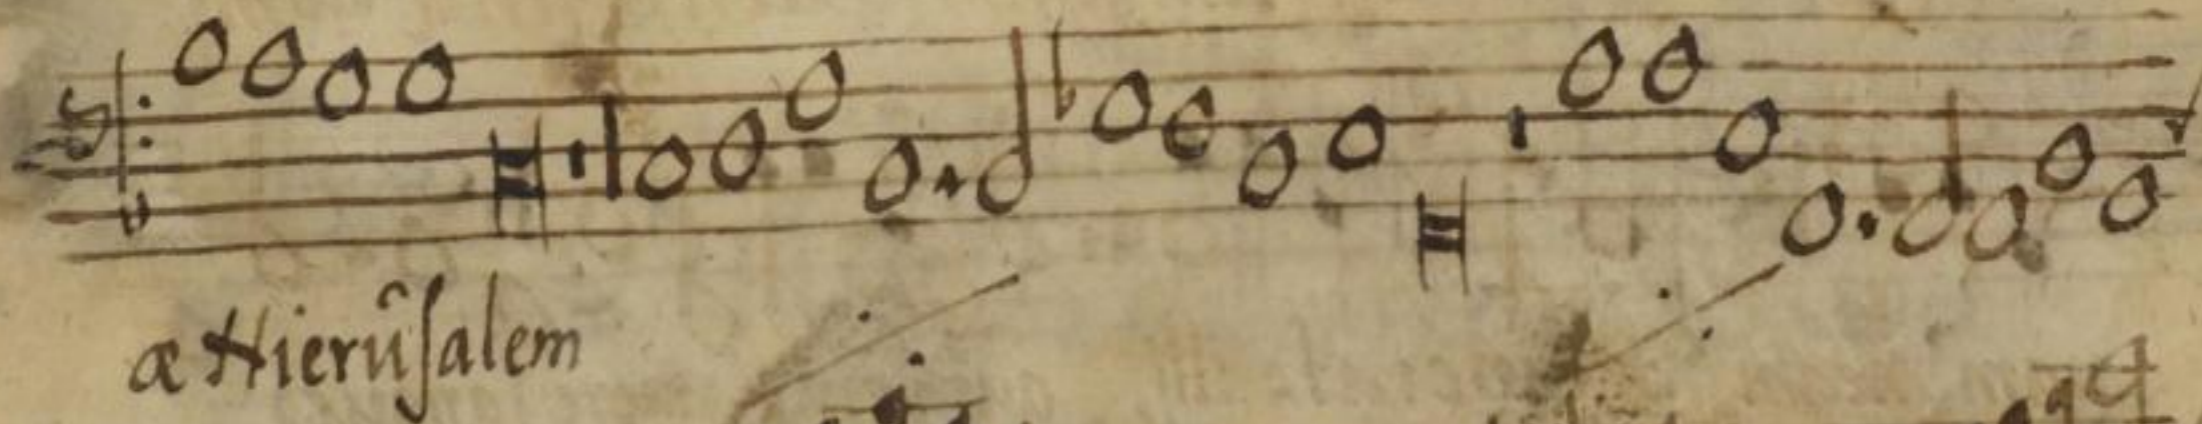 æ Hierûſalem